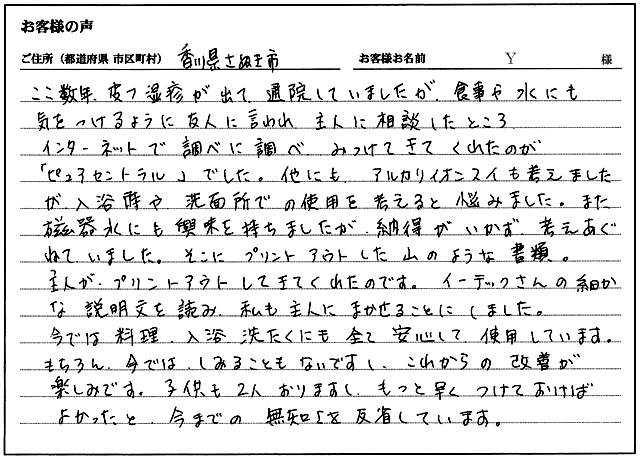 お客様の声
ご住所（都道府県 市区町村） 香川県さぬき市 お客様お名前 Y 様
ここ数年、皮フ湿疹が出て 通院していましたが、食事や水にも
気をつけるように友人に言われ 主人に相談したところ
インターネットで 調べに調べ みつけてきてくれたのが
「ピュアセントラル」でした。他にも、アルカリイオンスイも考えました
が、入浴時や 洗面所での使用を考えると悩みました。また
磁器水にも興味を持ちましたが、納得がいかず、考えあぐ
ねていました。そこに プリントアウトした山のような書類。
主人が、プリントアウトしてきてくれたのです。イーテックさんの細か
な説明文を読み、私も主人にまかせることにしました。
今では料理、入浴 洗たくにも全て安心して使用しています。
もちろん、今では、しみることもないですし、これからの改善が
楽しみです。子供も2人おりますし、もっと早くつけておけば
よかったと、今までの無知さを反省しています。